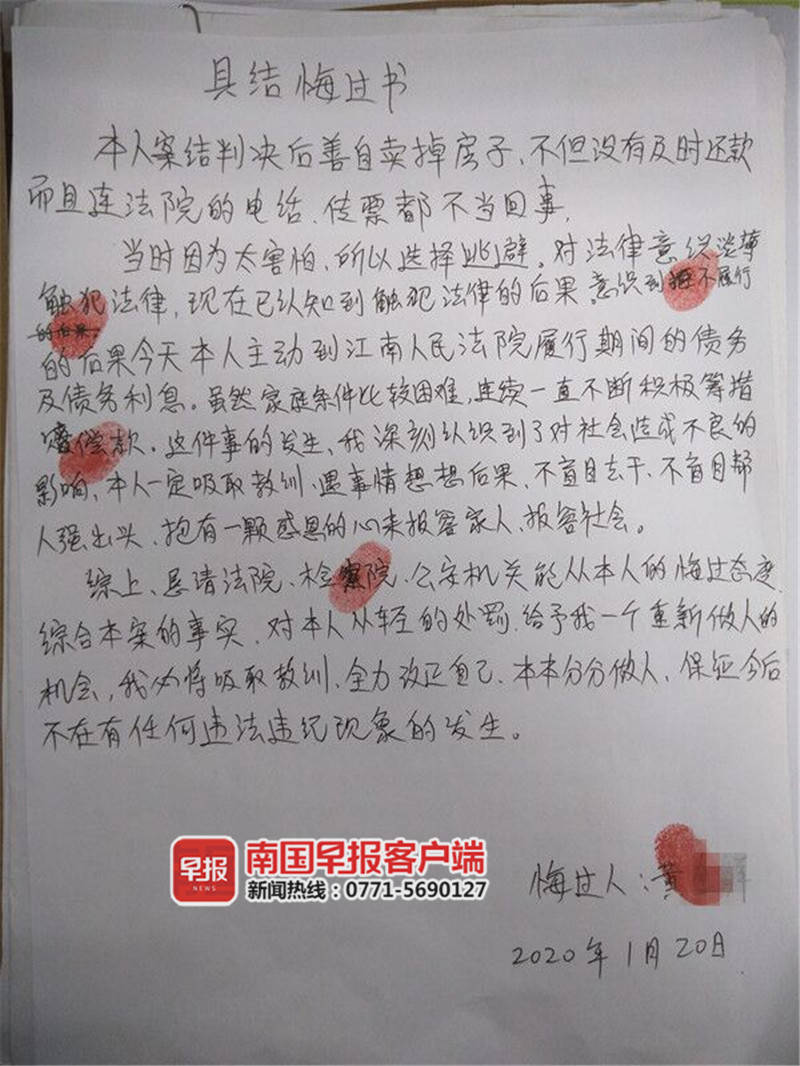 具结悔过书
本人案结判决后善自卖掉房子、不但没有及时还款
而且连法院的电话、传票都不当回事,
当时因为太害怕、所以选择逃避。对法律意识淡薄
触犯法律,现在已认知到触犯法律的后果,意识到拒不履行
的后果今天本人主动到江南人民法院履行期间的债务
及债务利息。虽然家庭条件比较困难,连续一直不断积极筹措
偿款。这件事的发生、我深刻认识到了对社会造成不良的
影响、本人一定吸取教训、遇事情想想后果、不盲目去干、不盲目帮
人强出头、抱有一颗感恩的心来报答家人、报答社会。
综上、恳请法院、检察院、公安机关能从本人的悔过态度
综合本案的事实、对本人从轻的处罚、给予我一个重新做人的
机会,我必将吸取教训、全力改正自己、本本分分做人、保证今后
不在有任何违法违纪现象的发生。
早报
NEWS
南国早报客户端
新闻热线:0771-5690127
悔过人:黄
2020年1月20日